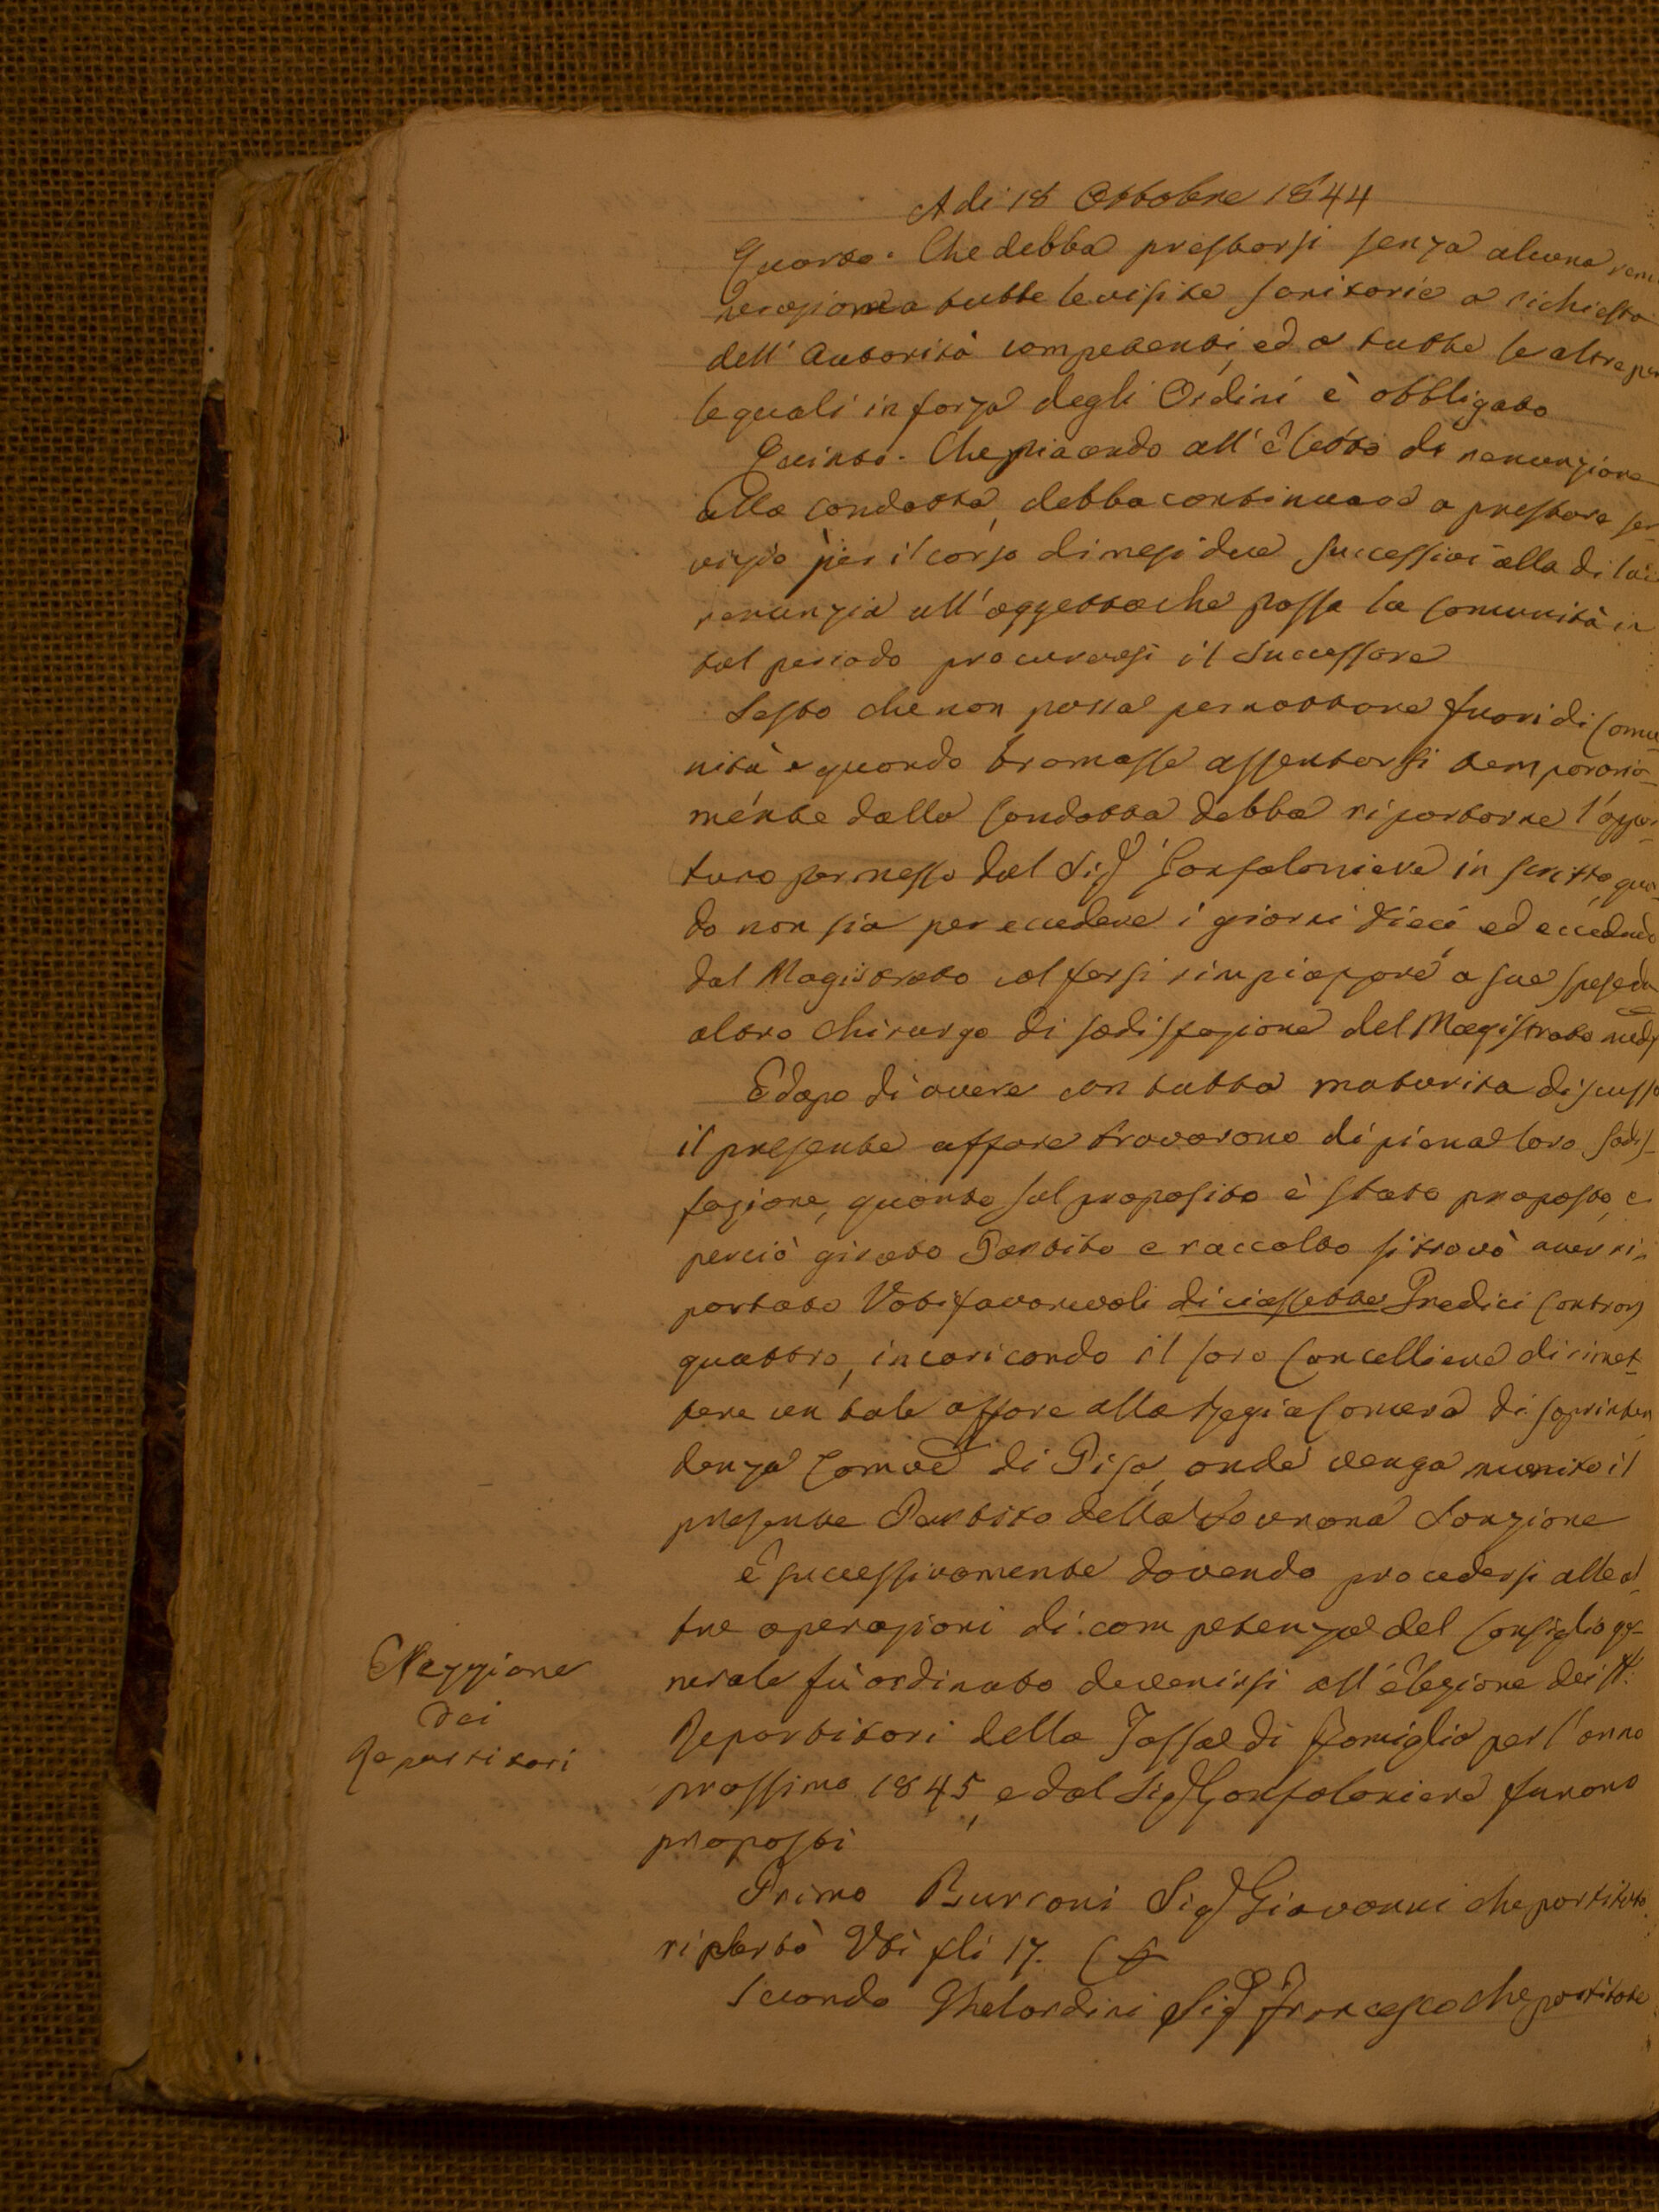 Adi 18 Ottobre 1844
Quarto. Che debba prestarsi senza alcuna remu
nerazione a tutte le visite sanitarie a richiesta
dell'Autorità competenti, ed a tutte le altre per
le quali in forza degli Ordini è obbligato
Quinto. Che piacendo all'eletto di renunziare
alla condotta, debba continuare a prestare ser-
vizio per il corso di mesi due successivi alla di lui
renunzia all'oggetto che possa la Comunità in
tal periodo procurarsi il Successore
Sesto che non possa pernottare fuori di Comu-
nità e quando bramasse assentarsi temporaria-
mente dalla Condotta debba riportarne l'oppor-
tuno permesso dal Sig Gonfaloniere in scritto, quan-
do non sia per eccedere i giorni dieci ed eccedendo
dal Magistrato col farsi rimpiazzare a sue spese da
altro Chirurgo di sodisfazione del Magistrato med
E dopo di avere con tutta maturita discusso
il presente affare trovarono di piena loro sadis-
fazione, quanto sul proposito è stato proposto, e
perciò girato Partito e raccolto si trovò aver ri-
portato Voti favorevoli diciassette Tredici Contrarj
quattro, incaricando il loro Cancelliere di rimet-
tere un tale affare alla Regia Camera di soprinten
denza Comve di Pisa, onde venga munito il
presente Partito della Sovrana Sanzione
E successivamente dovendo procedersi alle al-
tre operazioni di competenza del Consiglio ge-
nerale fù ordinato devenirsi all'elezione dei SS.
Repartitori della Tassa di Famiglia per l'anno
prossimo 1845, e dal Sig Gonfaloniere furono
proposti
Primo Burconi Sig Giovanni che partitato
riportò Vti fli 17.
Secondo Ghelardini Sig Francesco che partitato
Elezzione
dei
Repartitori